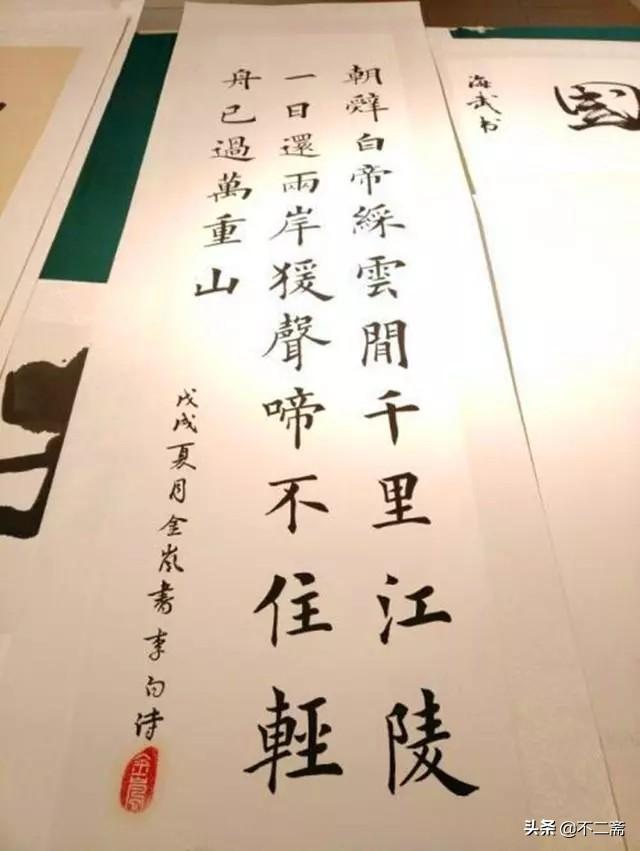 國
海武书
朝辭白帝綵雲閒千里江陵
一日還兩岸猨聲啼不住輕
舟已過萬重山
戊戌夏月金嵐書李白诗
头条 @不二斋